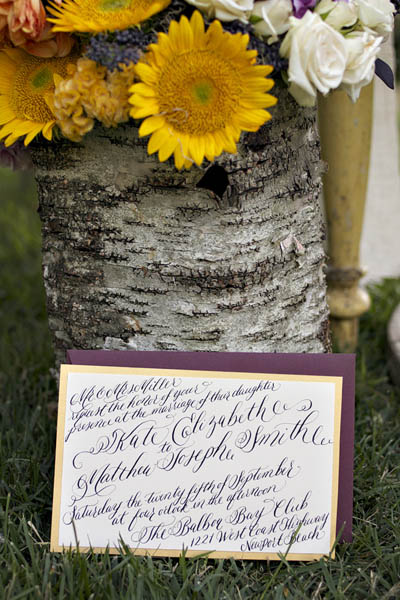 Mr & Mrs Miller
request the honor of your
presence at the marriage of their daughter
Kate Elizabeth
to
Matthew Joseph Smith
Saturday the twenty fifth of September
at four o'clock in the afternoon
The Balboa Bay Club
1221 West Coast Highway
Newport Beach